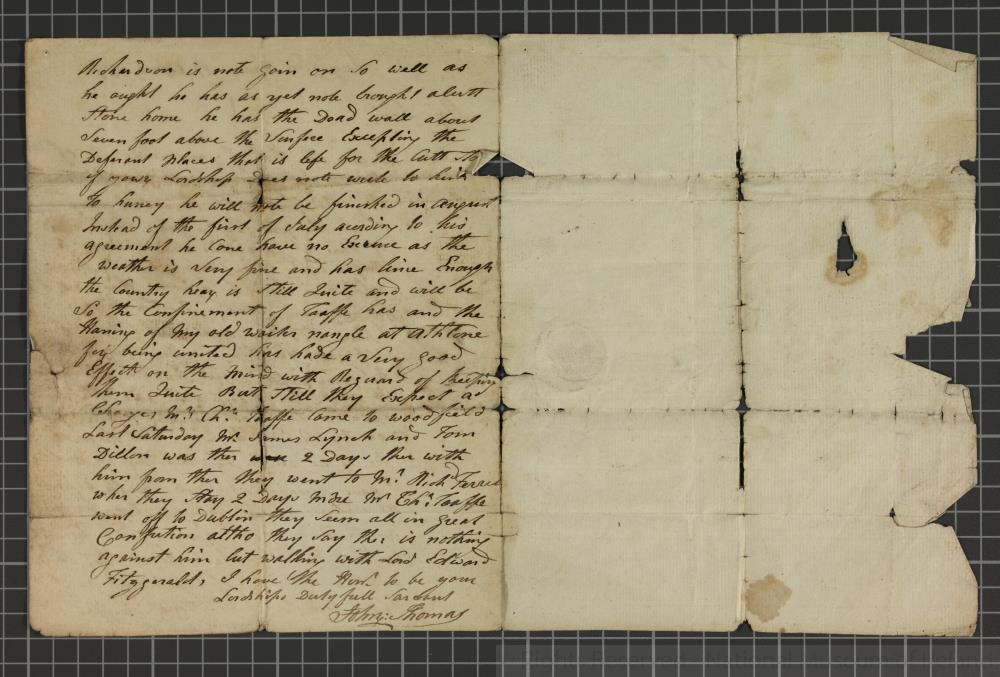 Richardson is note goin on so well as
he ought he has as yet note brought alertt
Stone home he has the Dead wall about
Seven foot above the Surfece Excepting the
Deferant places that is left for the Cutt Sto
if your Lordship Does note write to him
to hurrey he will note be finished in august
Instead of the first of July acording to his
agreement he Cone have no Excuse as the
weather is very fine and has line Enough
the Country heay is still Quite and will be
So the Confinement of Taaffe has and the
Haning of my old waiter nangle at athlone
for being united has hade a very good
Effect on the mind with Reguard of keeping
them Quite But still they Expect a
Chaynes Mr Chs Taaffe Came to woodfield
Last Saturday Mr James Lynch and Tom
Dillon was ther 2 Days ther with
him from ther they went to Mr Richd Ferrel
wher they Stay 2 Days more Mr Chs Taaffe
went off to Dublin they Seem all in great
Confution altho they Say ther is nothing
against him but walking with Lord Edward
Fitzgerald, I have the Honr to be your
Lordships Dutyfull Sarvant
John: Thomas